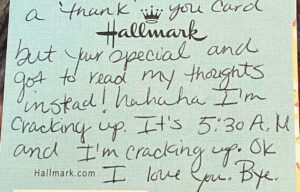 a "thank" you card
Hallmark
but your special and
got to read my thoughts
instead! hahaha I'm
cracking up. It's 5:30 A.M
and I'm cracking up. OK
Hallmark.com I love you. Bye.